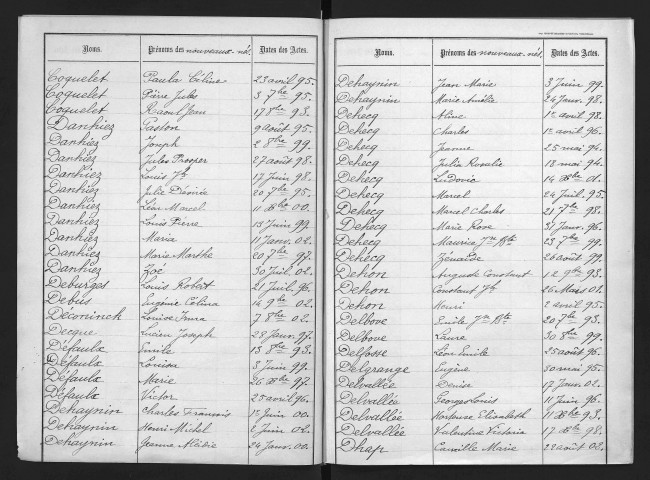 Noms. Prénoms des nouveaux-nés. Dates des Actes.
Coquelet Paula Céline 23 avril 95.
Coquelet Pierre Jules 3 7bre 95.
Coquelet Raoul Jean 17 8bre 93.
Danhiez Gaston 9 août 95.
Danhiez Joseph 2 8bre 99.
Danhiez Jules Prosper 27 août 98.
Danhiez Louis Jh 17 Juin 98.
Danhiez Julie Désirée 20 7bre 95.
Danhiez Léon Marcel 11 Xbre 00.
Danhiez Louis Pierre 15 Juin 99.
Danhiez Maria 11 Janv. 02.
Danhiez Marie Marthe 20 7bre 97.
Danhiez Zoé 30 Juil. 02.
Deburges Louis Robert 21 Juil. 96.
Debus Eugénie Célina 6 9bre 02.
Déconinck Louise Irma 7 8bre 02.
Decque Lucien Joseph 28 Janv. 97.
Défaulx Emile 13 8bre 93.
Défaulx Louisa 3 Juin 99.
Défaulx Marie 26 Xbre 97.
Défaulx Victor 25 avril 96.
Dehaynin Charles François 1er Juin 00.
Dehaynin Henri Michel Juin 02.
Dehaynin Jeanne 24 Janv. 00.
Noms. Prénoms des nouveaux-nés. Dates des Actes.
Dehaynin Jean Marie 3 Juin 99.
Dehaynin Marie Amélie 24 Janv. 98.
Dehecq Aline 1er avril 98.
Dehecq Charles 1er avril 96.
Dehecq Jeanne 25 mai 94.
Dehecq Julia Rosalie 18 mai 94.
Dehecq Ludovic 14 Xbre 01.
Dehecq Marcel 24 Juil. 95.
Dehecq Marcel Charles 21 7bre 98.
Dehecq Marie Rose 31 Janv. 96.
Dehecq Maurice Jn Bte 23 7bre 99.
Dehecq Zénaïde 26 août 99.
Dehon Auguste Constant 12 9bre 93.
Dehon Constant Jh 26 Mars 02.
Dehon Henri 2 avril 95.
Delbove Emile Jn Bte 20 7bre 93.
Delbove Laure 30 8bre 99.
Delfosse Léon Emile 25 août 96.
Delgrange Eugène 30 mai 95.
Delvallée Denise 17 Janv. 02.
Delvallée Georges Louis 11 Juin 96.
Delvallée Hortense Elisabeth 11 Xbre 93.
Delvallée Valentine Victoria 17 Xbre 98.
Dhap Camille Marie 22 août 02.